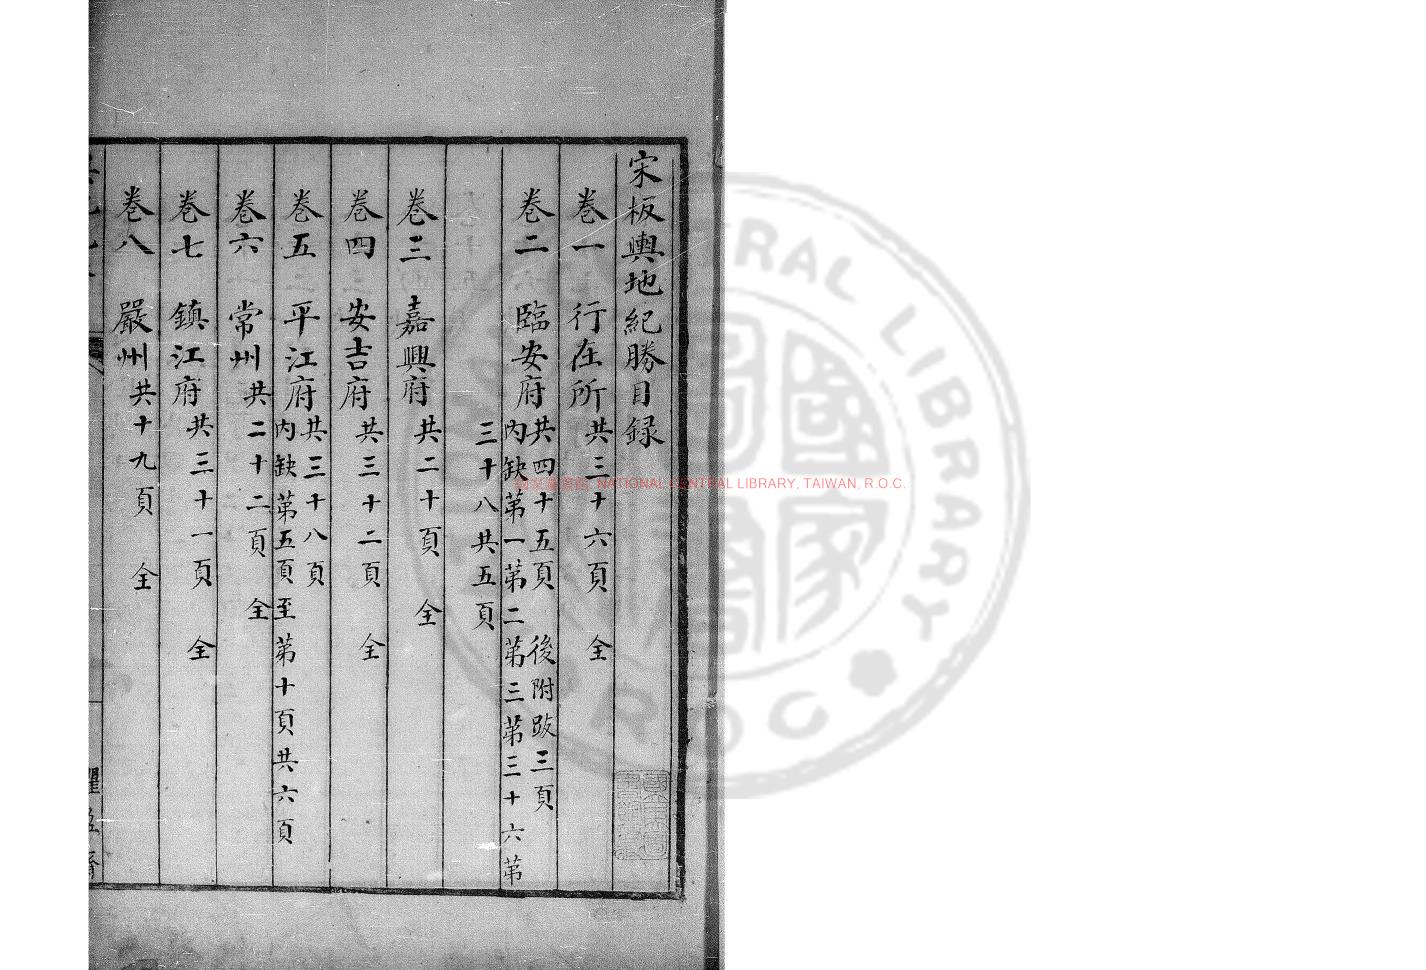 宋板輿地紀勝目録
卷一 行在所 共三十六頁 全
卷二 臨安府 共四十五頁 後附跋三頁
内缺第一第二第三第三十六第
三十八共五頁
卷三 嘉興府 共二十頁 全
卷四 安吉府 共三十二頁 全
卷五 平江府 共三十八頁
内缺第五頁至第十頁共六頁
卷六 常州 共二十二頁 全
卷七 鎮江府 共三十一頁 全
卷八 嚴州 共十九頁 全
NATIONAL CENTRAL LIBRARY, TAIWAN, R.O.C.